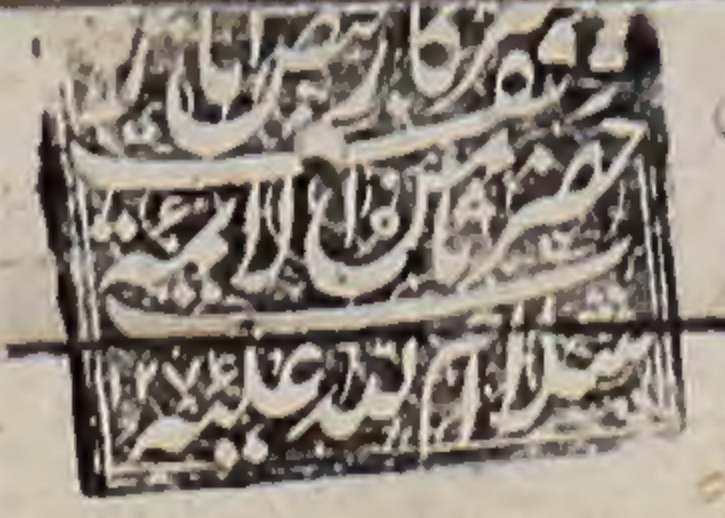 سرکار فیض آثار
حضرت ثامن الائمه
سلام الله علیه ۱۲۷۶